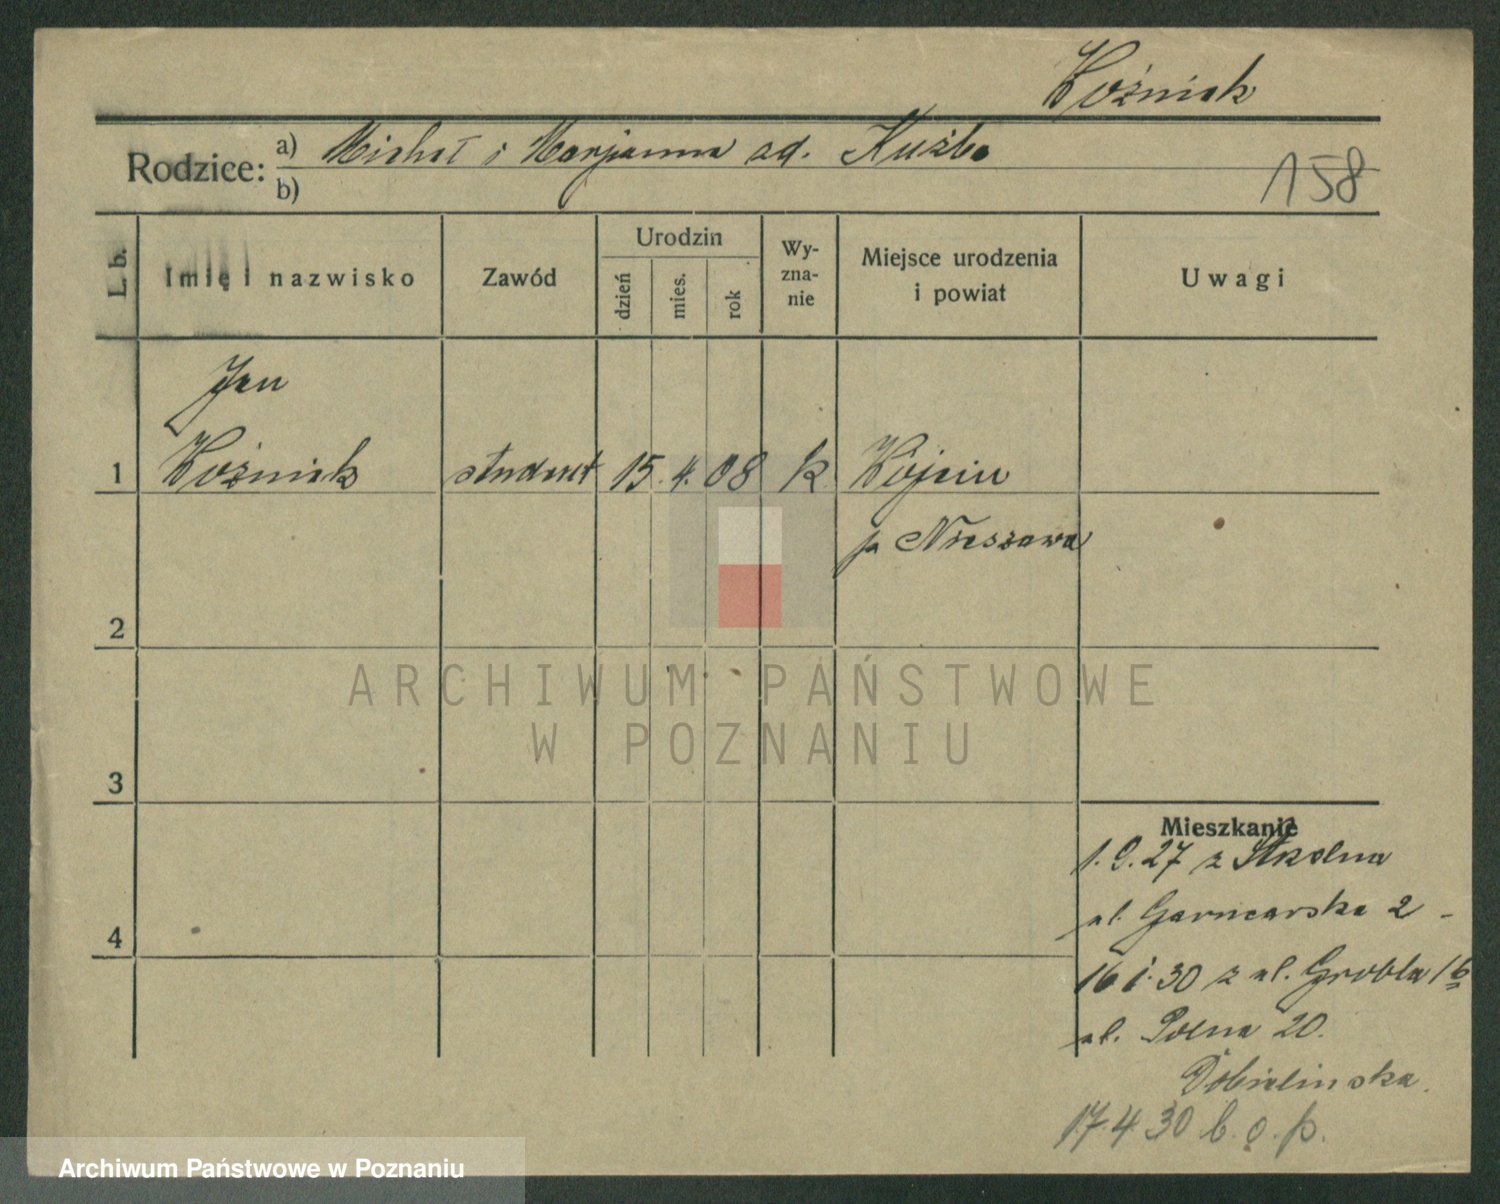 Woźniak
Rodzice:
a) Michał i Marjanna ad. Kuźba
b)
158
L. b.
Imię i nazwisko
Zawód
Urodzin
dzień
mies.
rok
Wy-
zna-
nie
Miejsce urodzenia
i powiat
Uwagi
Jan
1 Woźniak student 15. 4. 08 k Wójcin
p Nieszawa
2
3
4
Mieszkanie
1.9.27 z
ul. Garncarska 2 -
16 1.30 z ul. Grobla 16
ul. Polna 20.
17.4 30 b. o. p.
ARCHIWUM PAŃSTWOWE
W POZNANIU
Archiwum Państwowe w Poznaniu